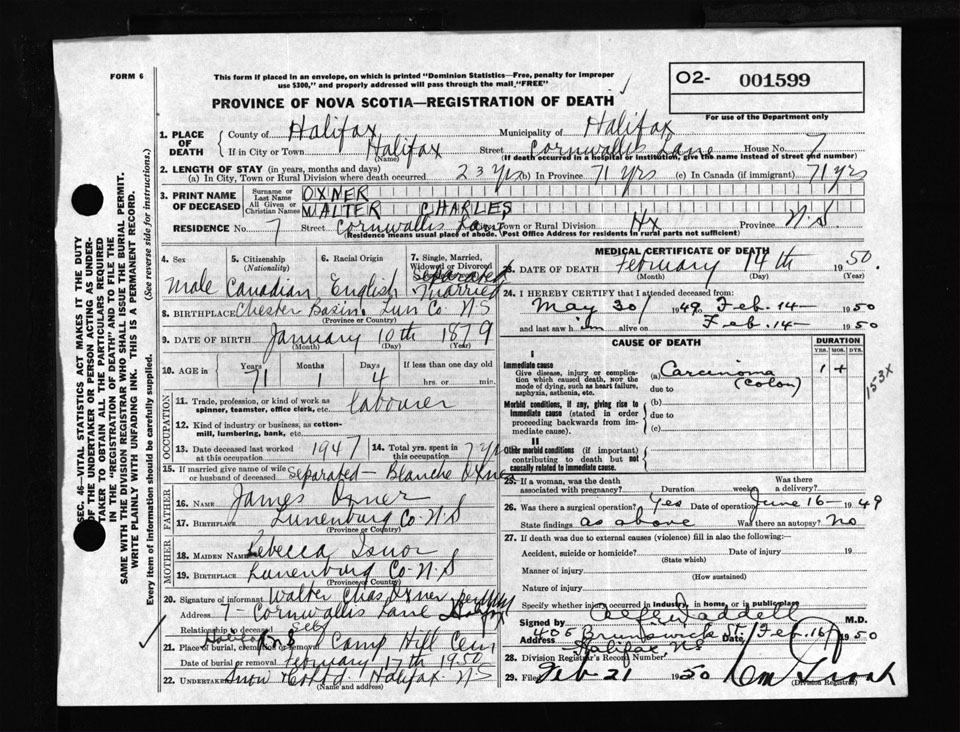 FORM 6
This form if placed in an envelope, on which is printed "Dominion Statistics—Free, penalty for improper
use $300," and properly addressed will pass through the mail "FREE"
O2- 001599
For use of the Department only
PROVINCE OF NOVA SCOTIA—REGISTRATION OF DEATH
1. PLACE OF DEATH
County of Halifax Municipality of Halifax
If in City or Town Halifax Street Cornwallis Lane House No. 7
(Name) (If death occurred in a hospital or institution, give the name instead of street and number)
2. LENGTH OF STAY (in years, months and days)
(a) In City, Town or Rural Division where death occurred 23 yrs (b) In Province 71 yrs (c) In Canada (if immigrant) 71 yrs
3. PRINT NAME OF DECEASED
Surname or Last Name OXNER
All Given or Christian Names WALTER CHARLES
RESIDENCE No. 7 Street Cornwallis Lane Town or Rural Division Hx Province N.S.
(Residence means usual place of abode. Post Office Address for residents in rural parts not sufficient)
4. Sex
5. Citizenship (Nationality)
6. Racial Origin
7. Single, Married, Widowed or Divorced
Male Canadian English Separated Married
8. BIRTHPLACE Chester Basin. Lun Co NS
(Province or Country)
9. DATE OF BIRTH January 10th 1879
(Month) (Day) (Year)
10. AGE in Years 71 Months 1 Days 4 If less than one day old
hrs. or min.
OCCUPATION
11. Trade, profession or kind of work as
spinner, teamster, office clerk, etc. labourer
12. Kind of industry or business, as cotton-
mill, lumbering, bank, etc.
13. Date deceased last worked at this occupation 1947
14. Total yrs. spent in this occupation 7 yrs
15. If married give name of wife
or husband of deceased Separated - Blanche Oxner
FATHER
16. Name James Oxner
17. Birthplace Lunenburg Co. N.S
(Province or Country)
MOTHER
18. Maiden Name Rebecca Isnor
19. Birthplace Lunenburg Co. N.S
(Province or Country)
20. Signature of informant Walter Chas Oxner
Address 7- Cornwallis Lane Halifax
Relationship to deceased Self
21. Place of burial, cremation or removal Halifax NS Camp Hill Cem
Date of burial or removal February 17th 1950
22. Undertaker Snow & Co Ltd. Halifax. NS
(Name and address)
MEDICAL CERTIFICATE OF DEATH
23. DATE OF DEATH February 14th 1950.
(Month) (Day)
24. I HEREBY CERTIFY that I attended deceased from:
May 30/ 1949 Feb. 14 - 1950
and last saw him alive on Feb. 14 - 1950
CAUSE OF DEATH
DURATION
YRS. MOS. DYS.
I
Immediate cause
Give disease, injury or complica-
tion which caused death, NOT the
mode of dying, such as heart failure,
asphyxia, asthenia, etc.
(a) Carcinoma 1 +
due to (Colon)
153X
Morbid conditions, if any, giving rise to
immediate cause (stated in order
proceeding backwards from im-
mediate cause).
(b)
due to
(c)
II
Other morbid conditions (if important)
contributing to death but not
causally related to immediate cause.
25. If a woman, was the death
associated with pregnancy? Duration weeks
Was there a delivery?
26. Was there a surgical operation? Yes Date of operation June 16 - 1949
State findings as above Was there an autopsy? No
27. If death was due to external causes (violence) fill in also the following:
Accident, suicide or homicide? Date of injury 19
(State which)
Manner of injury
(How sustained)
Nature of injury
Specify whether injury occurred in industry, in home, or in public place
Signed by Waddell M.D.
Address 405 Brunswick St. Feb. 16 1950
Halifax NS
28. Division Registrar's Record Number
29. Filed Feb 21 1950
(Division Registrar)
SEC. 46—VITAL STATISTICS ACT MAKES IT THE DUTY
OF THE UNDERTAKER OR PERSON ACTING AS UNDER-
TAKER TO OBTAIN ALL THE PARTICULARS REQUIRED
IN THE "REGISTRATION OF DEATH" AND TO FILE THE
SAME WITH THE DIVISION REGISTRAR WHO SHALL ISSUE THE BURIAL PERMIT.
WRITE PLAINLY WITH UNFADING INK. THIS IS A PERMANENT RECORD.
Every item of information should be carefully supplied. (See reverse side for instructions.)